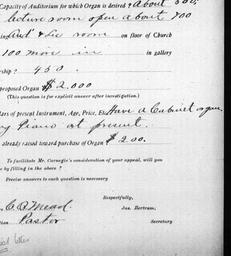 Capacity of Auditorium for which Organ is desired? About 300
lecture room open about 700
Aud & Lec room on floor of Church
100 more in in gallery
rship? 450.
proposed Organ $2,000
(This question is for explicit answer after investigation).
lars of present Instrument, Age, Price, Etc. Have a Cabinet organ
Piano at present.
already raised toward purchase of Organ $200.
To facilitate Mr. Carnegie's consideration of your appeal, will you
be filling in the above?
Precise answers to each question is necessary.
Respectfully,
Mead Jas. Bertram,
Pastor Secretary